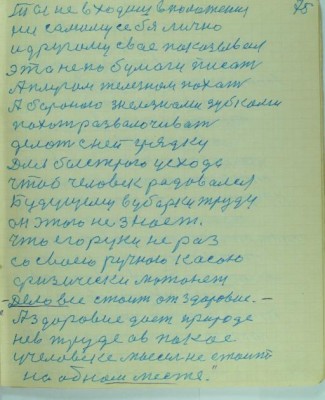 75
Та не входим в положения
ни самому себя лично
и другому свае показывал
это не по бумаги писат
А плугом железном пахат
А бароною з железнами зубками
похот разволочиват
делат с ней грядку
Для быстрого усхода
чтоб человек радовался
Будущему в уборки труду
он этого не знает.
что его руки не раз
со своею ручною касою
физически матанет
– Дело все стоит от здоровие. –
"А здоровие дает природе
не в труде ов такое
у человеке мысел не стоит
на одном месте."